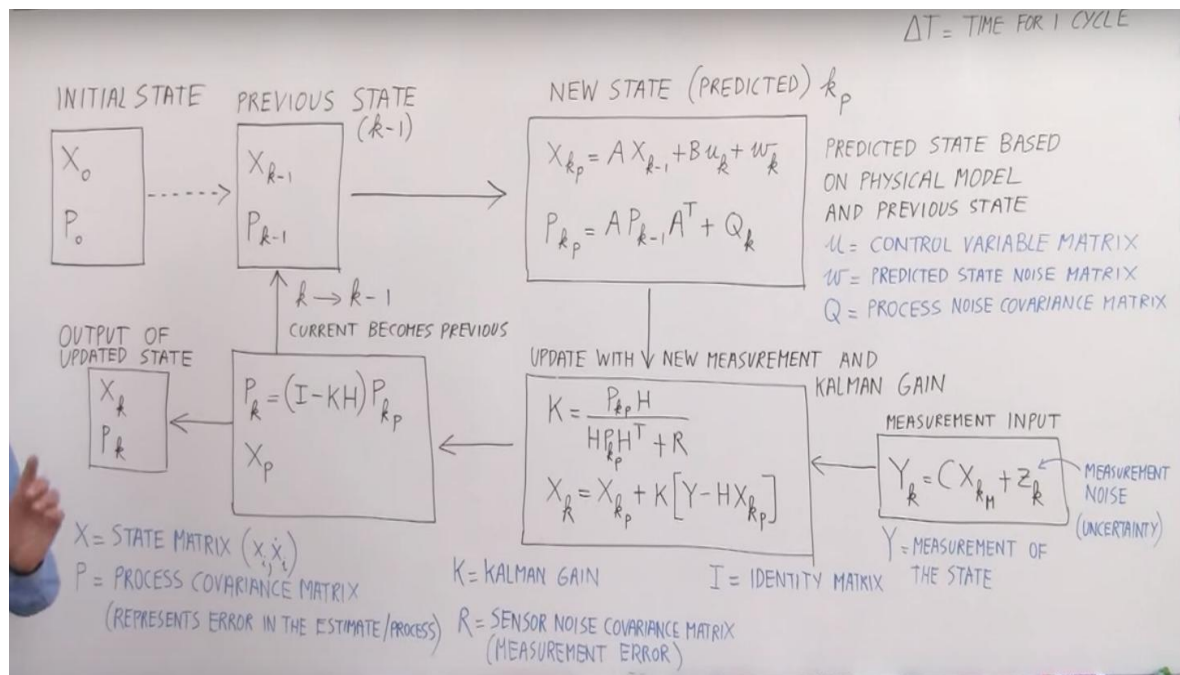 ΔT = TIME FOR 1 CYCLE
INITIAL STATE
X₀
P₀
PREVIOUS STATE
(k-1)
Xₖ₋₁
Pₖ₋₁
NEW STATE (PREDICTED) kₚ
X_kₚ = AXₖ₋₁ + Buₖ + wₖ
P_kₚ = APₖ₋₁Aᵀ + Qₖ
PREDICTED STATE BASED
ON PHYSICAL MODEL
AND PREVIOUS STATE
u = CONTROL VARIABLE MATRIX
w = PREDICTED STATE NOISE MATRIX
Q = PROCESS NOISE COVARIANCE MATRIX
k → k-1
CURRENT BECOMES PREVIOUS
OUTPUT OF
UPDATED STATE
Xₖ
Pₖ
Pₖ = (I-KH)P_kₚ
Xₚ
UPDATE WITH NEW MEASUREMENT AND
KALMAN GAIN
K = P_kₚ H / HP_kₚHᵀ + R
Xₖ = X_kₚ + K[Y-HX_kₚ]
MEASUREMENT INPUT
Yₖ = CX_kM + Zₖ
MEASUREMENT
NOISE
(UNCERTAINTY)
Y = MEASUREMENT OF
THE STATE
X = STATE MATRIX (Xᵢ, Ẋᵢ)
P = PROCESS COVARIANCE MATRIX
(REPRESENTS ERROR IN THE ESTIMATE/PROCESS)
K = KALMAN GAIN
I = IDENTITY MATRIX
R = SENSOR NOISE COVARIANCE MATRIX
(MEASUREMENT ERROR)